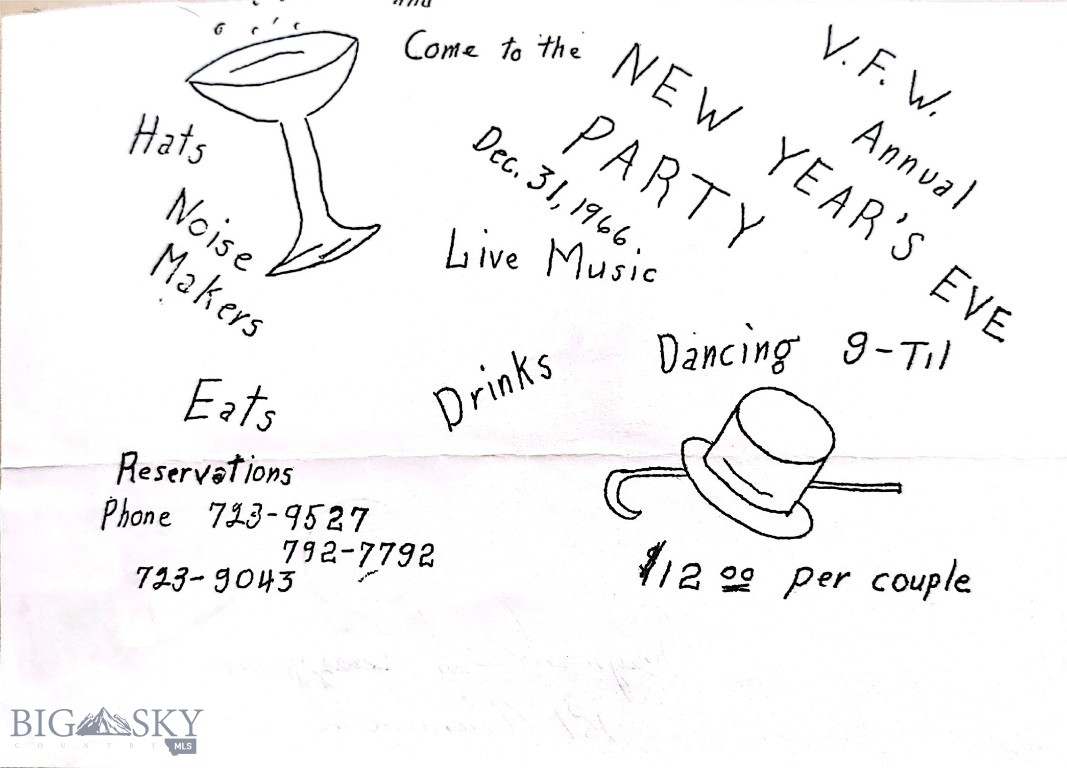 and
Come to the
V.F.W.
Annual
NEW YEAR'S EVE
PARTY
Dec. 31, 1966.
Live Music
Hats
Noise
Makers
Dancing 9-Til
Drinks
Eats
Reservations
Phone 723-9527
792-7792
723-9043
$12 00 per couple
BIG SKY
COUNTRY MLS